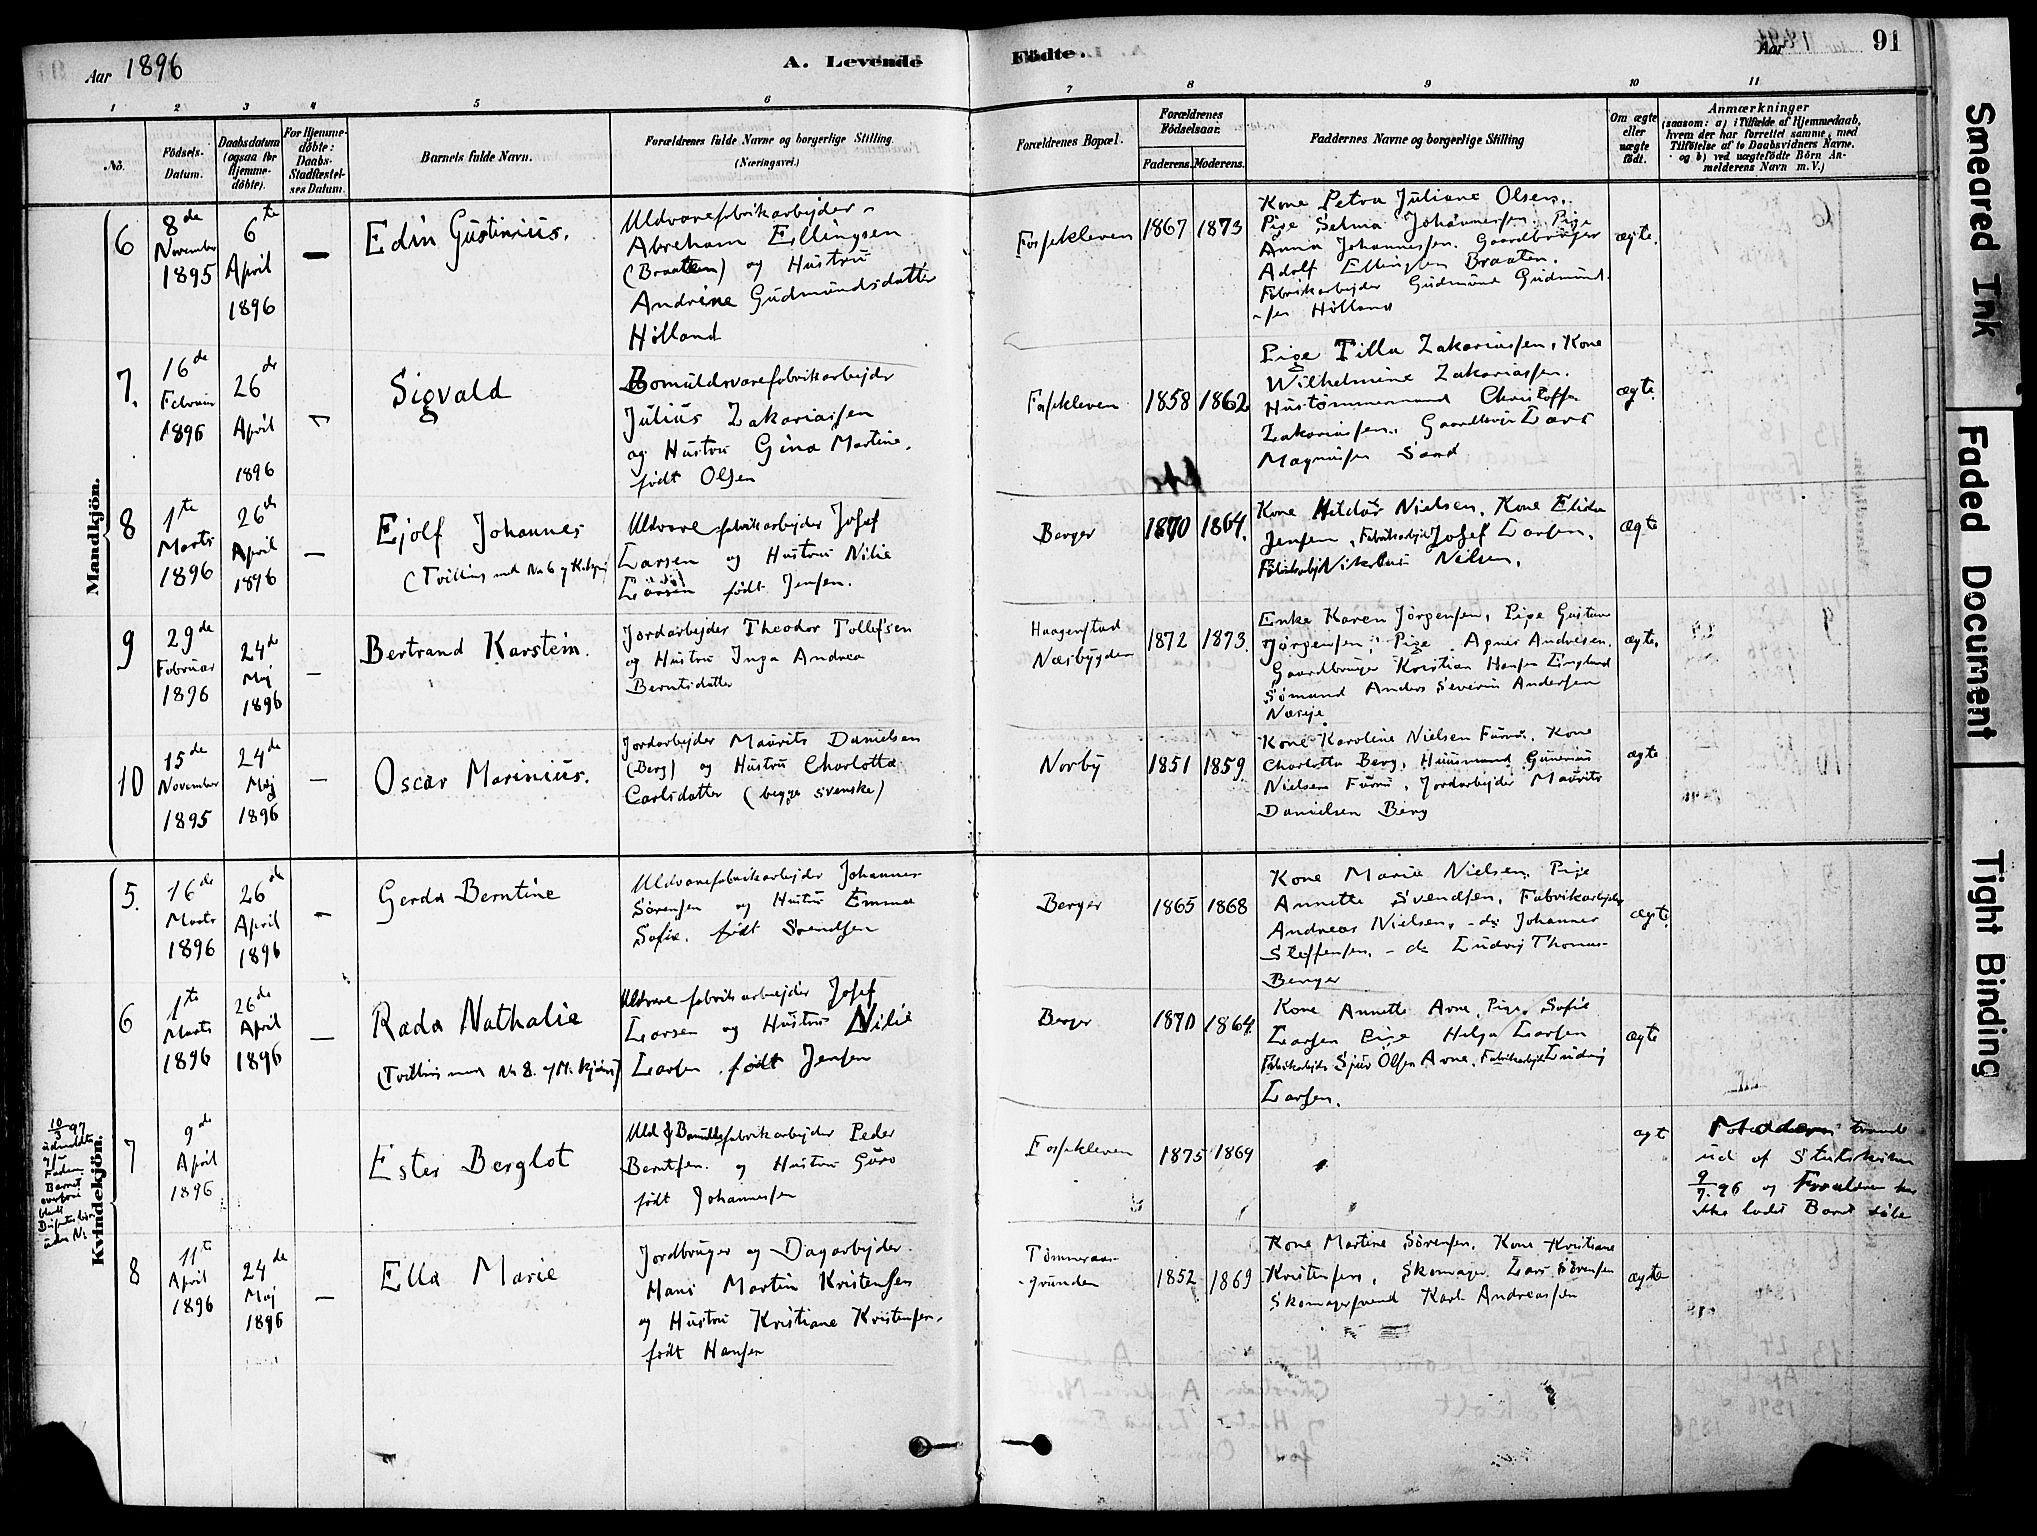 Aar 1896
A. Levende
Födte.
Aar 1896
91
1 2 3 4 5 6 7 8 9 10 11
No.
Födsels-Datum.
Daabsdatum (ogsaa for Hjemme-döbte).
For Hjemme-döbte: Daabs-Stadfæstel-ses Datum.
Barnets fulde Navn.
Forældrenes fulde Navne og borgerlige Stilling. (Næringsvei.)
Forældrenes Bopæl.
Forældrenes Födselsaar.
Faderens. Moderens.
Faddernes Navne og borgerlige Stilling
Om ægte eller uægte födt.
Anmærkninger
(saasom: a) i Tilfælde af Hjemmedaab,
hvem der har forrettet samme, med
Tilföielse af to Daabsvidners Navne.
og b) ved uægtefödte Börn An-
melderens Navn m. V.)
Mandkjön.
6
8de November 1895
6te April 1896
—
Edin Gustinius.
Uldvarefabrikarbejder
Abraham Ellingsen
(Braaten) og Hustru
Andrine Gudmundsdatter
Holland
Fossekleven
1867 1873
Kone Petra Juliane Olsen,
Pige Selma Johannessen. Pige
Anna Johannessen. Gaardbruger
Adolf Ellingsen Braaten.
Fabrikarbejder Gudmund Gudmund-
-sen Holland
ægte.
7.
16de Februar 1896
26de April 1896
Sigvald
Bomuldsvarefabrikarbejdr
Julius Zakariassen
og Hustru Gina Martine.
født Olsen
Fossekleven
1858 1862
Pige Tilla Zakariassen, Kone
Wilhelmine Zakariassen.
Hustømmermand Christoffer
Zakariassen. Gaardbruger Lars
Magnussen Sand
ægte.
8
1te Marts 1896
26de April 1896
—
Ejolf Johannes
(Tvilling med No 6 af Kvkjøn)
Uldvarefabrikarbejder Josef
Larsen og Hustru Nilie
Larsen født Jensen.
Berger
1870 1864.
Kone Hildur Nielsen, Kone Elida
Jensen, Fabrikarbejd Josef Larsen.
Fabrikarbejd Nielsen.
ægte
9
29de Februar 1896
24de Maj 1896
—
Bertrand Karstein.
Jordarbejder Theodor Tollefsen
og Hustru Inga Andrea
Berntsdatter
Haagenstad
Næsbygden
1872 1873.
Enke Karen Jørgensen, Pige Gustava
Jørgensen, Pige Agnes Andresen.
Gaardbruger Kristian Hansen Englund
Sømand Anders Severin Andersen
Næseje
ægte.
10
15de November 1895
24de Maj 1896
—
Oscar Marinius.
Jordarbejder Maurits Danielsen
(Berg) og Hustru Charlotta
Carlsdatter (begge svenske)
Norby
1851 1859
Kone Karoline Nielsen Furu, Kone
Charlotta Berg, Huusmand Gunerius
Nielsen Furu, Jordarbejder Maurits
Danielsen Berg
ægte
Kvindekjön.
5.
16de Marts 1896
26de April 1896
—
Gerda Berntine
Uldvarefabrikarbejder Johannes
Sørensen og Hustru Emma
Sofie. født Svendsen
Berger
1865 1868
Kone Marie Nielsen, Pige
Annette Svendsen, Fabrikarbejder
Andreas Nielsen, - do Johannes
Steffensen, - do Ludvig Thomas-
Berger
ægte.
6
1te Marts 1896
26de April 1896
—
Rada Nathalie
(Tvilling med No 8. af M.kjøn)
Uldvarefabrikarbejder Josef
Larsen og Hustru Nilie
Larsen. født Jensen
Berger
1870 1864.
Kone Annette Arne, Pige Sofie
Larsen Pige Helga Larsen
Fabrikarbejder Sjur Olsen Arne, Fabrikarbejd Ludvig
Larsen.
ægte
7
9de April 1896
Ester Berglot
Uld & Bomuldsfabrikarbejder Peder
Berntsen. og Hustru Guro
født Johannessen
Fossekleven
1875 1869
ægt
Moderen traadt
ud af Statskirken
9/7.96 og Forældrene har
ikke ladet Barnet døbe
10/3 97
udmeldte
Faderen
Barnet
overført
blandt
under No
8
11te April 1896
24de Maj 1896
—
Ella Marie
Jordbruger og Dagarbejder.
Hans Martin Kristensen
og Hustru Kristiane Kristensen.
født Hansen
Tømmeraas-
-grunden
1852 1869
Kone Martine Sørensen. Kone Kristiane
Kristensen, Skomager Lars Sørensen
Skomagersvend Karl Andreassen
ægte
Smeared Ink
Faded Document
Tight Binding